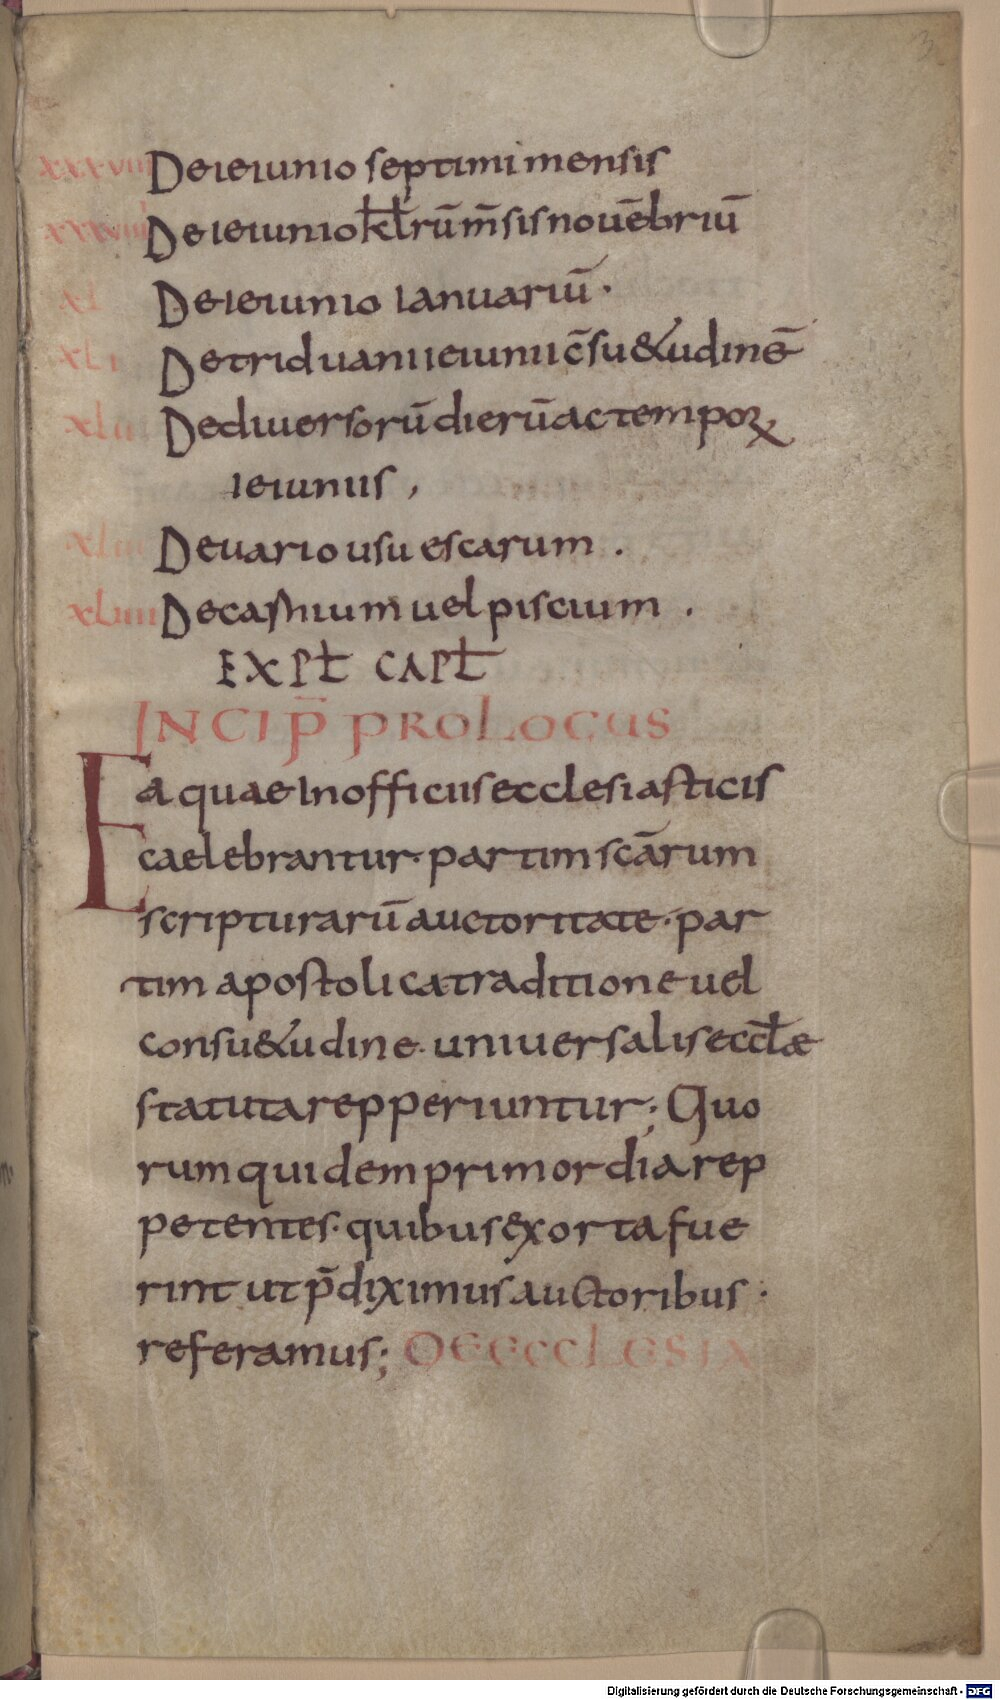 3
xxxviii De ieiunio septimi mensis
xxxviiii De ieiunio kl̄rū m̄sis nouēbriū
xl De ieiunio ianuariū.
xli De triduani ieiunii c̄su&udinē
xlii De diuersorū dierū ac tempoꝝ
ieiuniis,
xliii De uario usu escarum.
xliiii De carnium uel piscium.
EXPŁ CAPŁ
INCIP̄ PROLOGUS
Ea quae in officiis ecclesiasticis
caelebrantur· partim scārum
scripturarū auctoritate· par
tim apostolica traditione uel
consu&udine· uniuersalis eccłæ
statuta repperiuntur; Quo
rum quidem primordia rep
petentes· quibus exorta fue
rint ut p̄diximus auctoribus·
referamus; DE ECCLESIA
Digitalisierung gefördert durch die Deutsche Forschungsgemeinschaft - DFG